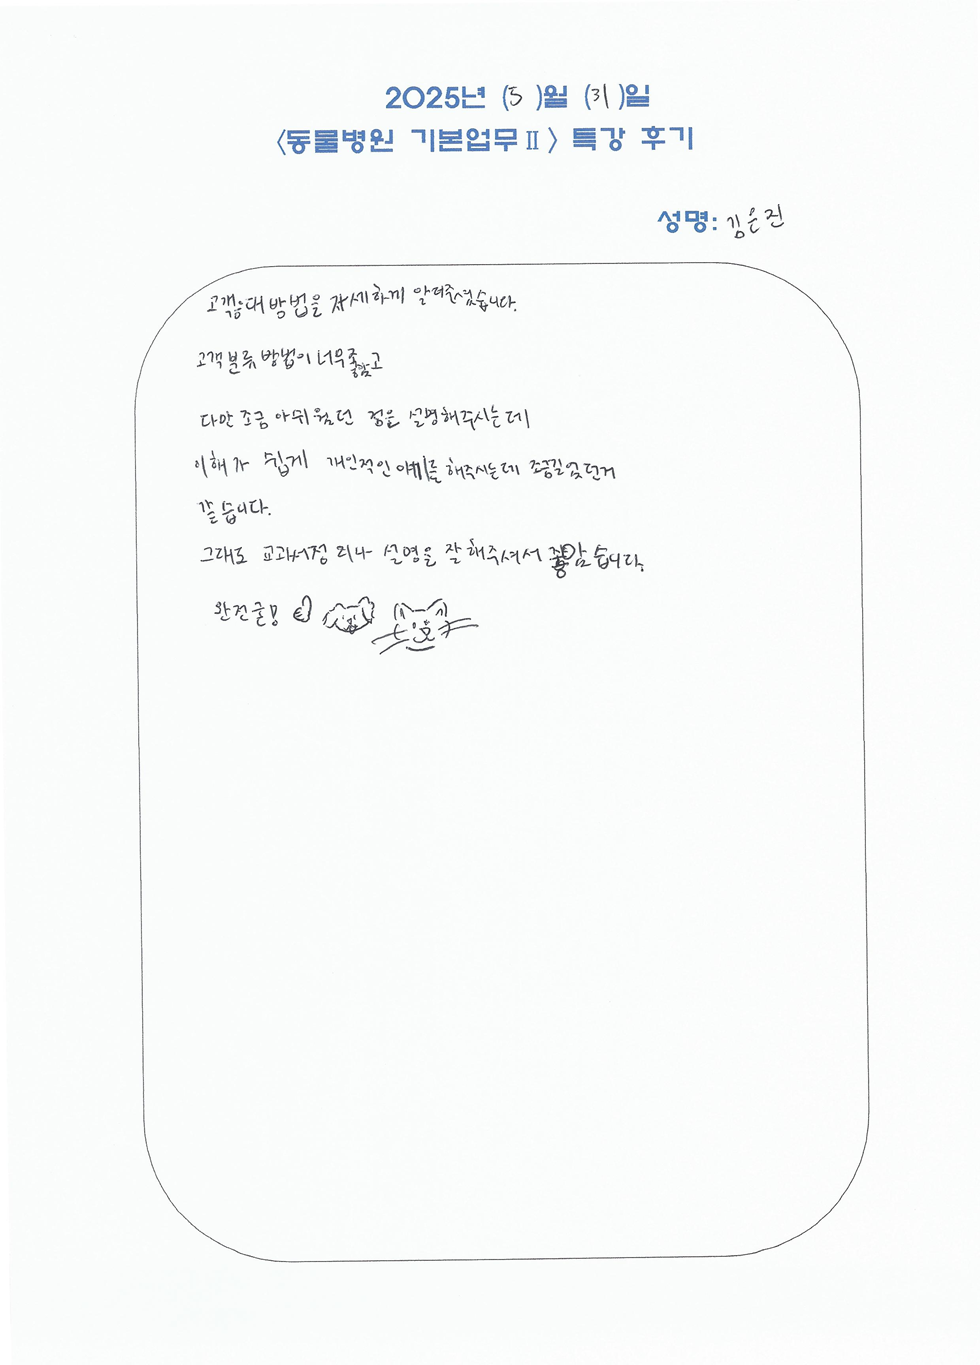 2025년 (5)월 (31)일
<동물병원 기본업무Ⅱ> 특강 후기
성명: 김은진
고객응대 방법을 자세하게 알려주셨습니다.
고객분류 방법이 너무 좋았고
다만 조금 아쉬웠던 점은 설명해주시는데
이해가 쉽게 개인적인 얘기를 해주시는데 조금길었던거
같습니다.
그대로 교과서정리나 설명을 잘 해주셔서 좋았습니다.
완전굳!